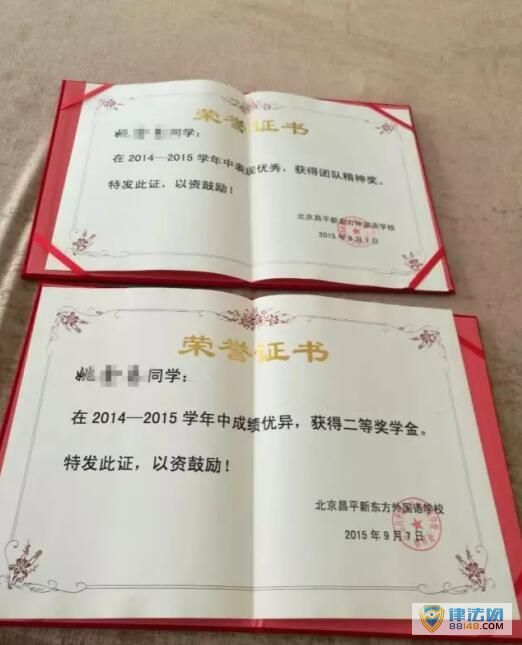 荣誉证书
姚 同学:
在2014—2015学年中表现优秀，获得团队精神奖。
特发此证，以资鼓励！
北京昌平新东方外国语学校
2015年9月1日
荣誉证书
姚 同学:
在2014—2015学年中成绩优异，获得二等奖学金。
特发此证，以资鼓励！
北京昌平新东方外国语学校
2015年9月7日
律法网
88148.com